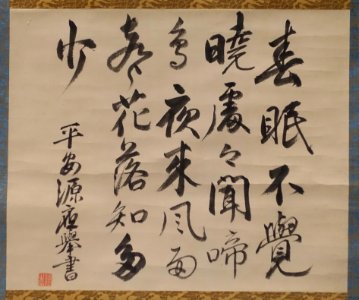 春眠不覺
曉處々聞啼
鳥夜来風雨
聲花落知多
少
平安源應擧書